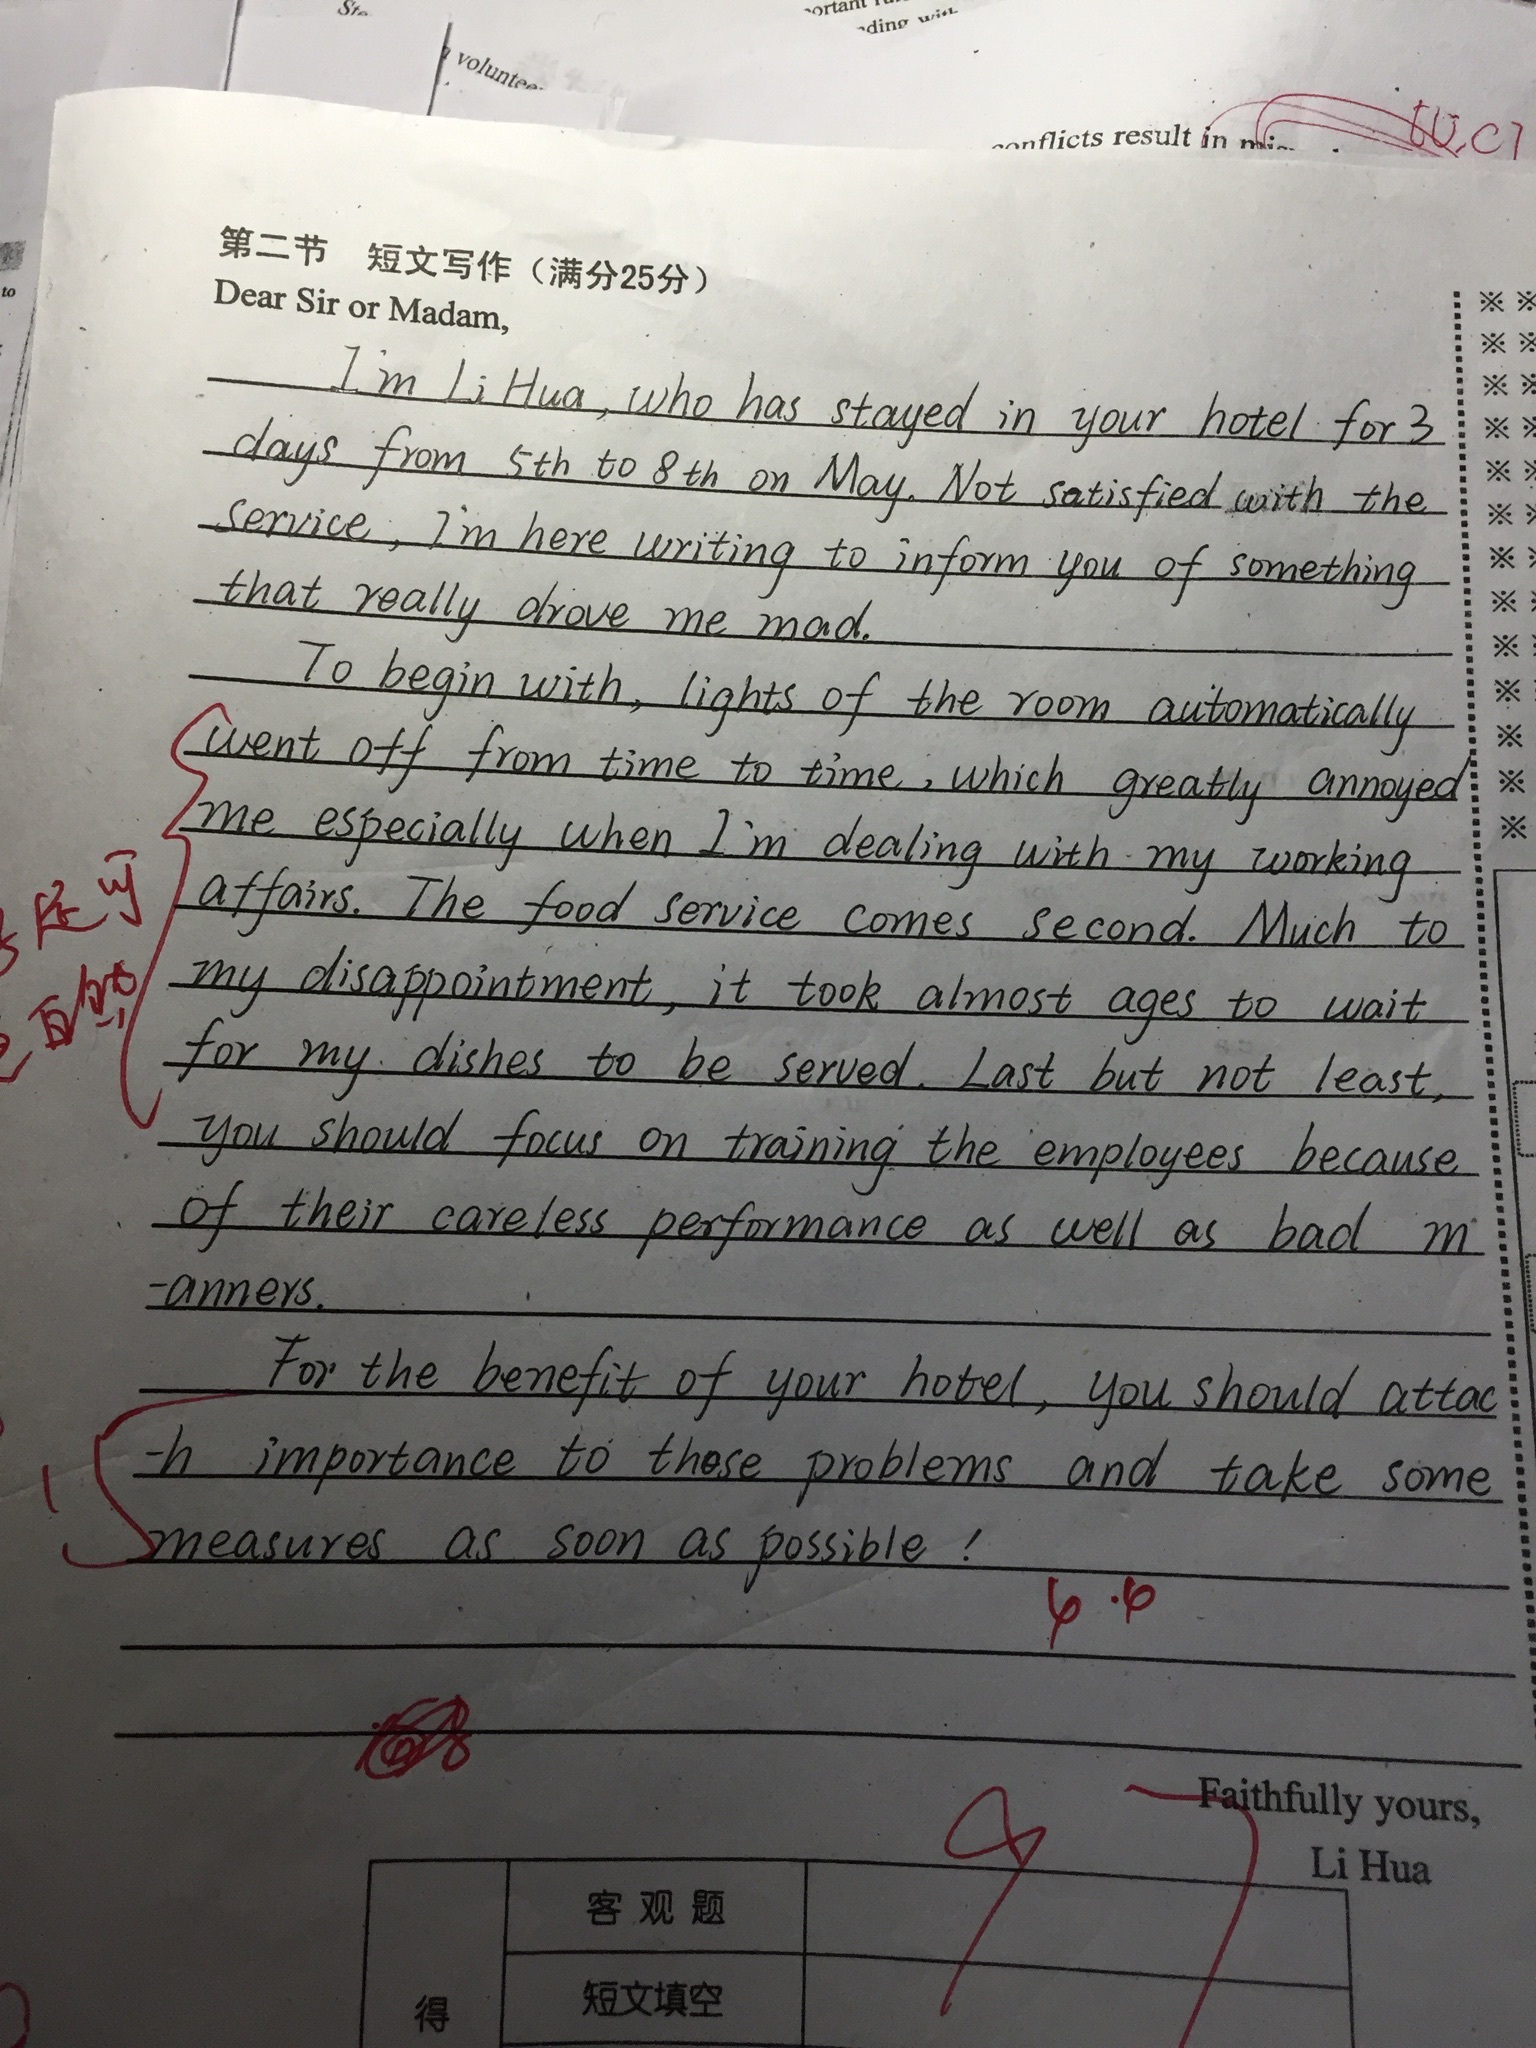 volunteer
conflicts result in
to
第二节 短文写作（满分25分）
Dear Sir or Madam,
I'm Li Hua, who has stayed in your hotel for 3
days from 5th to 8th on May. Not satisfied with the
service, I'm here writing to inform you of something
that really drove me mad.
To begin with, lights of the room automatically
went off from time to time, which greatly annoyed
me especially when I'm dealing with my working
affairs. The food service comes second. Much to
my disappointment, it took almost ages to wait
for my dishes to be served. Last but not least,
you should focus on training the employees because
of their careless performance as well as bad m
-anners.
For the benefit of your hotel, you should attac
-h importance to these problems and take some
measures as soon as possible!
Faithfully yours,
Li Hua
客观题
短文填空
得